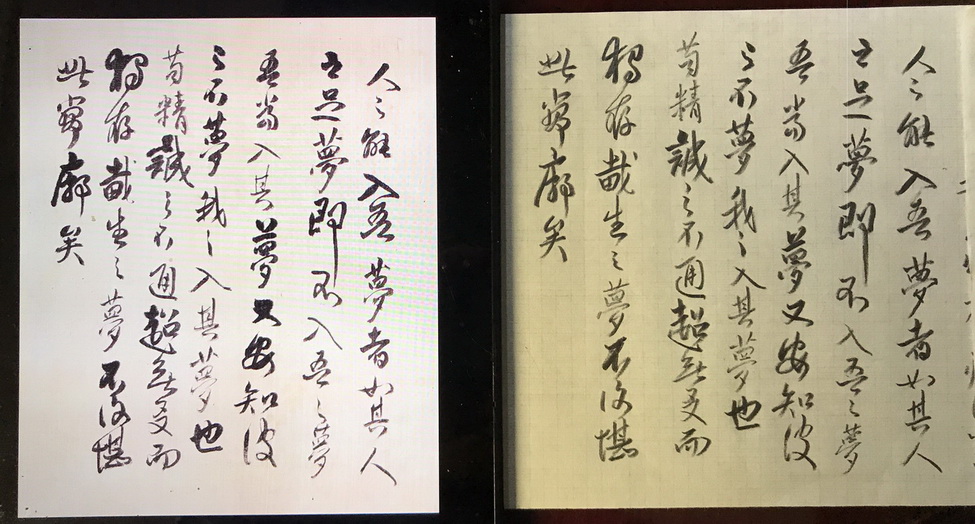 人之能入吾夢者如其人
之足夢即不入吾之夢
吾當入其夢又安知彼
之不夢我之入其夢也
苟精誠之不通超無友而
獨存載生之夢不復堪
此寥廓矣
人之能入吾夢者如其人
之足夢即不入吾之夢
吾當入其夢又安知彼
之不夢我之入其夢也
苟精誠之不通超無友而
獨存載生之夢不復堪
此寥廓矣